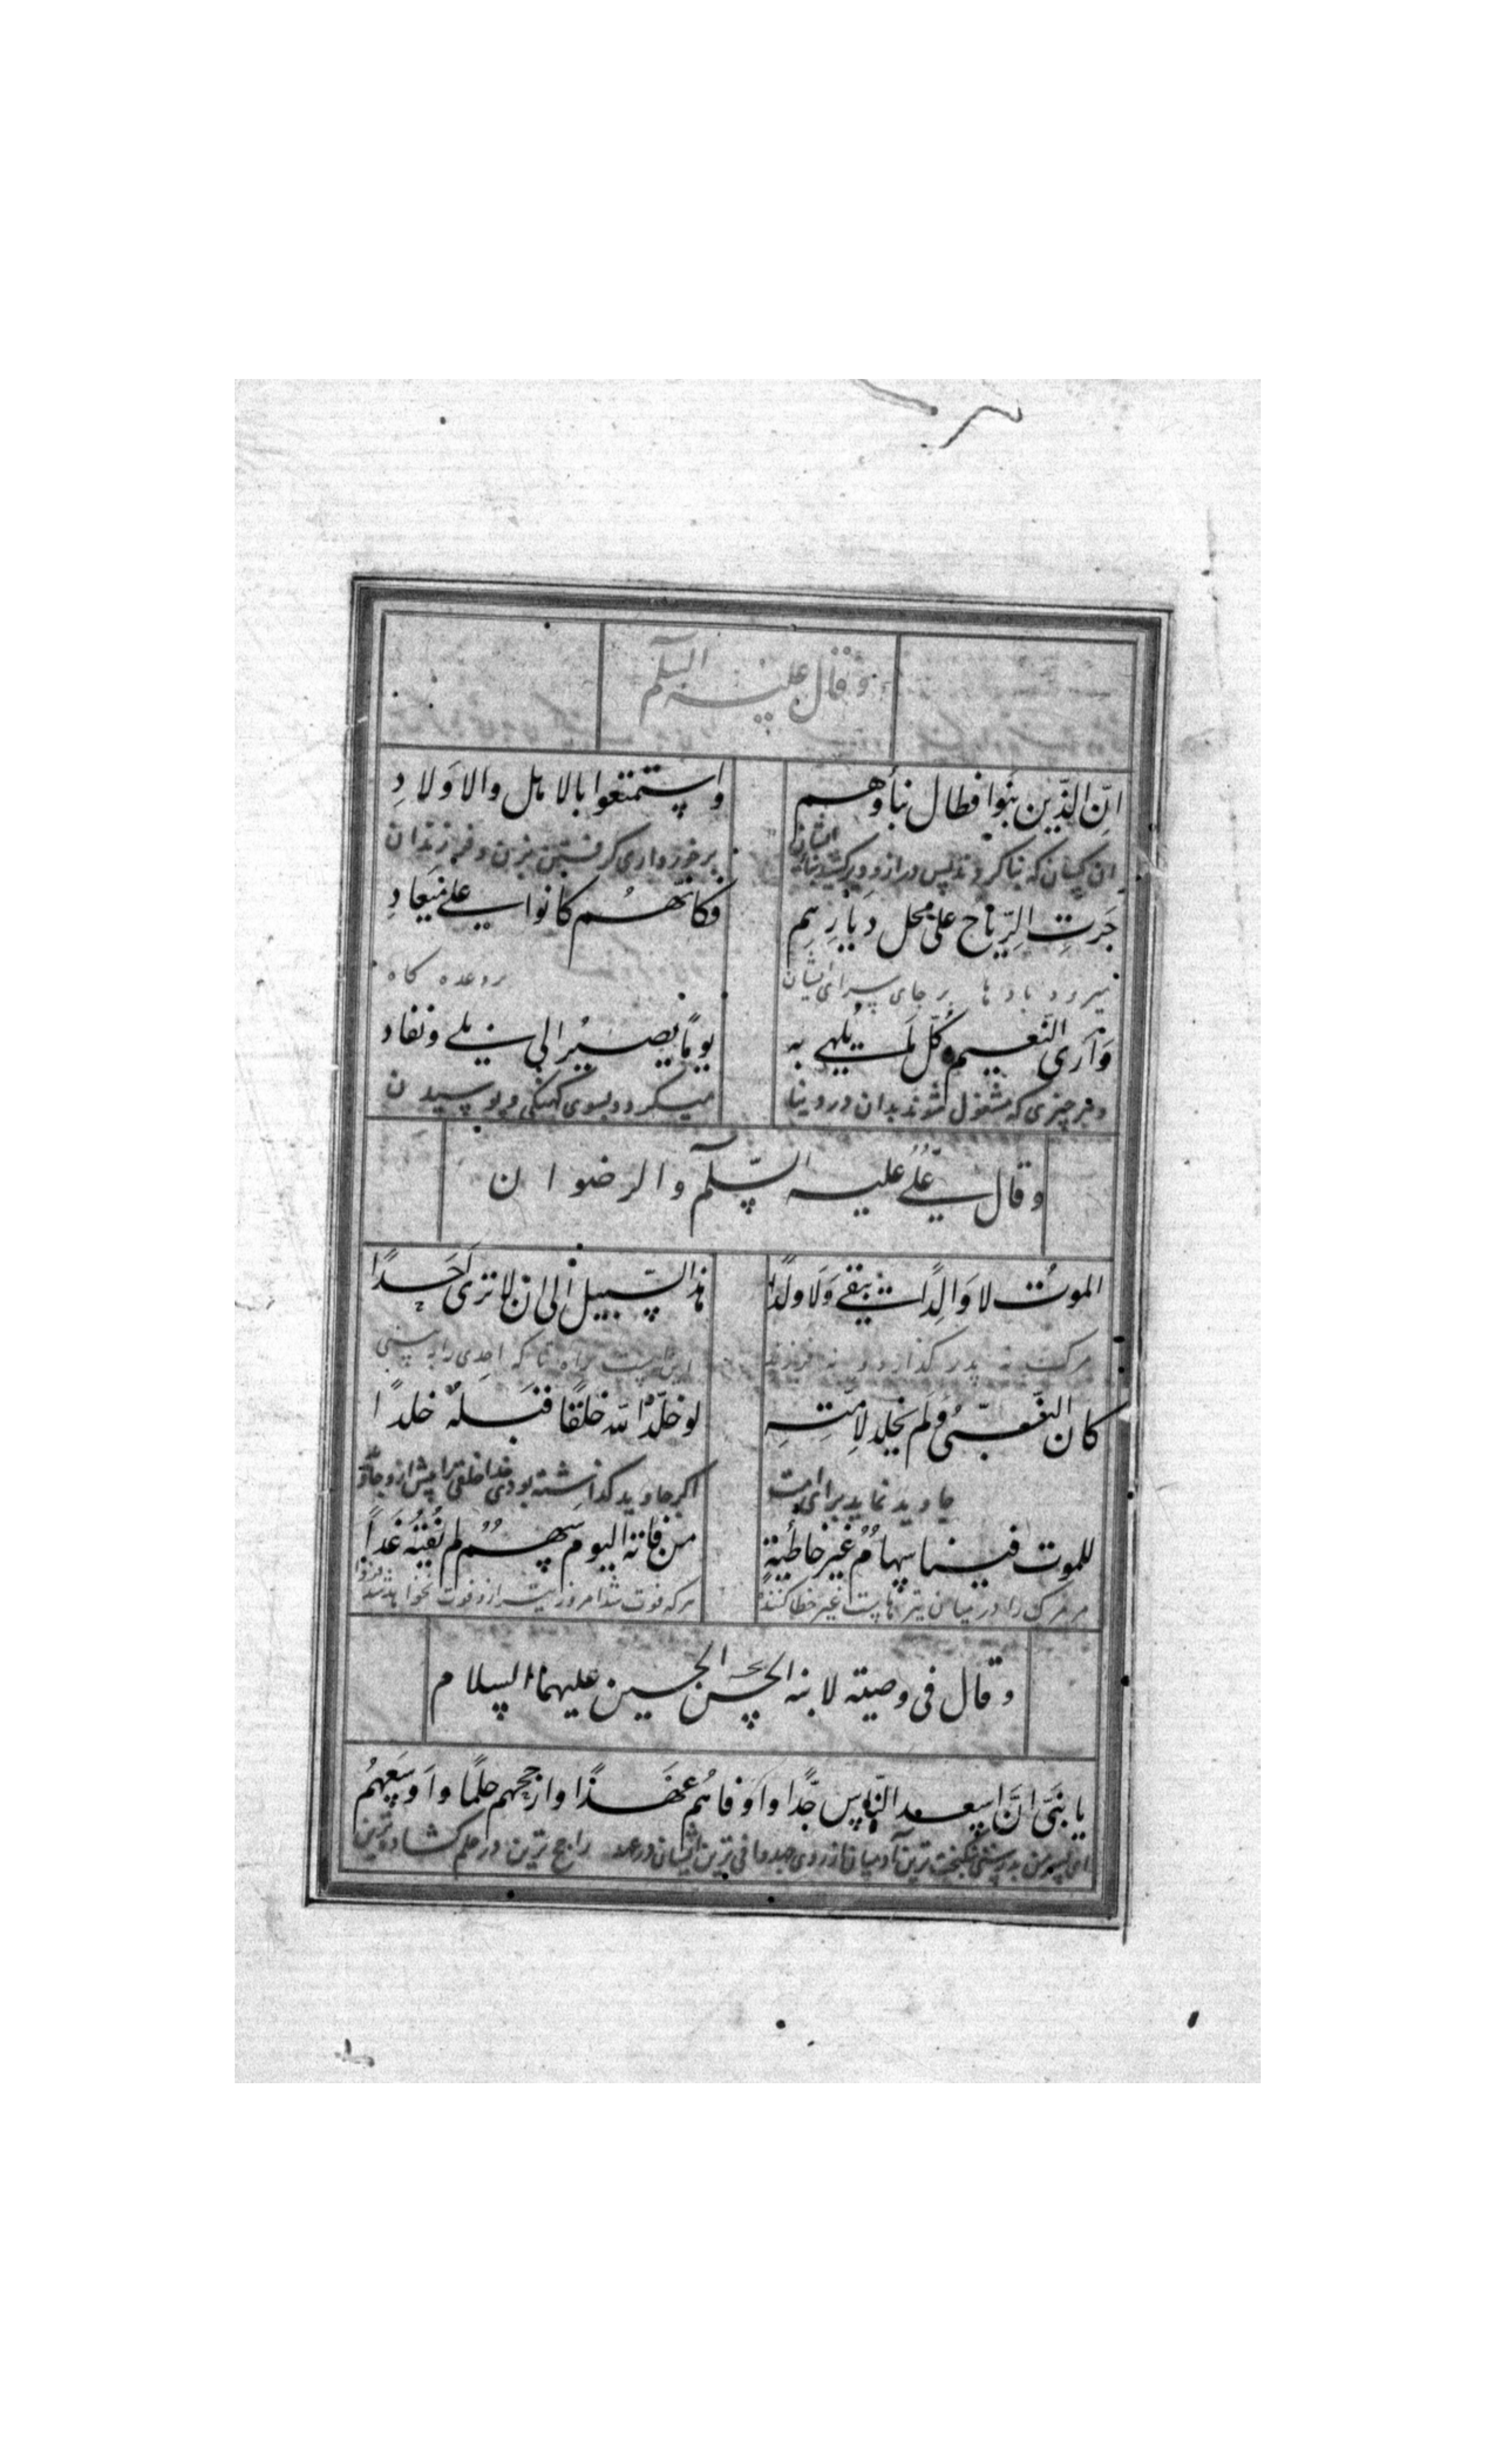 وقال عليه السلم
ان الذين بنوا فطال بناؤهم واستمتعوا بالاهل والاولاد
ان كسان كه بنا كردند پس دراز و دير كشيد بناى ايشان برخوردارى گرفتن بزن و فرزندان
جرت الرياح على محل ديارهم فكانهم كانوا على ميعاد
ميرود بادها بر جاى سراى ايشان بر وعده كاه
وارى النعيم وكل ما يلهى به يوما يصير الى بلى ونفاد
وهر چيزى كه مشغول شوند بدان در دنيا ميكردد بسوى كهنكى و پوسيدن
وقال على عليه السلم والرضوان
الموت لا والدا يبقى ولا ولدا هذا السبيل الى ان لا ترى احدا
مرك نه پدر كذارد و نه فرزند اين است راه تا كه احدى را نه بينى
كان النبى ولم يخلد لامته لو خلد الله خلقا قبله خلدا
جاويد نمايد براى امت اكر جاويد كذاشته بودى خدا خلقى را پيش از و
للموت فينا سهام غير خاطئة من فاته اليوم سهم لم يفته غدا
مر مرك را در ميان تيرهاست غير خطا كننده هركه فوت شد امروز تير از و فوت نخواهد شد فردا
وقال فى وصيته لابنه الحسن الحسين عليهما السلام
يا بنى ان اسعد الناس جدا واوفاهم عهدا وارجحهم حلما واوسعهم
اى پسر من بدرستى نيكبخت ترين آدميان از روى جد و وافى ترين ايشان در عهد راجح ترين در حلم كشاده ترين